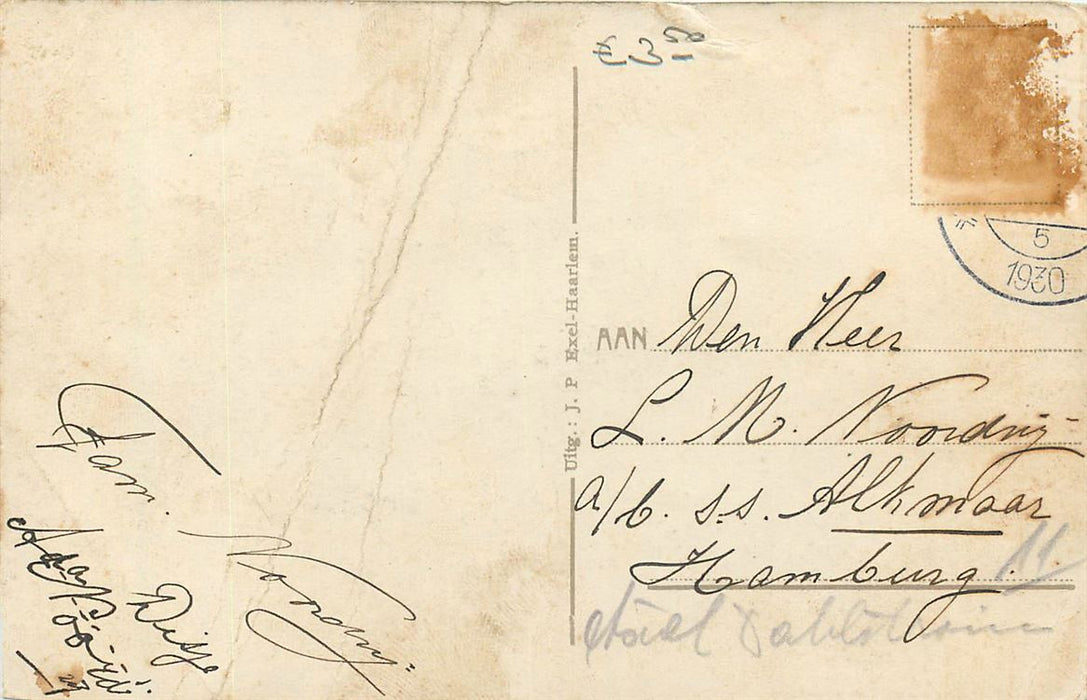 £ 3 50
5
1930
Uitg.: J. P Exel-Haarlem.
AAN Den Heer
L. M. Noordzij
a/b. s.s. Alkmaar
Hamburg. 11
Fam. Noordzij